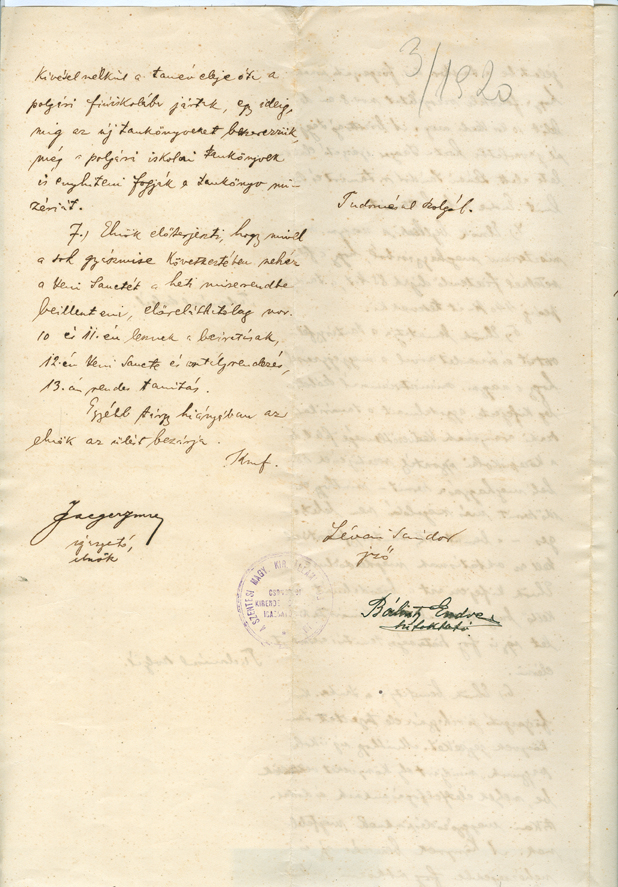 3/1920
Kivétel nélkül a tanév eleje óta a
polgári fiúiskolába jártak, egy ideig,
míg az új tankönyveket beszerezzük,
még a polgári iskolai tankönyvek
is enyhíteni fogják a tankönyv mi-
zériát.
Tudomásul szolgál.
7.) Elnök előterjeszti, hogy mivel
a sok gyászmise következtében nehéz
a Veni Sanctét a heti miserendbe
beilleszteni, előreláthatólag nov.
10 és 11.-én lennének a beiratások,
12-én Veni Sancte és osztályrendezés,
13.-án rendes tanítás.
Egyéb tárgy hiányában az
elnök az ülést bezárja.
Kmf.
Jaeger Imre
igazgató,
elnök
Lévai Sándor
jző
Bálint Endre
hitoktató
A SZENTESI MAGY. KIR.